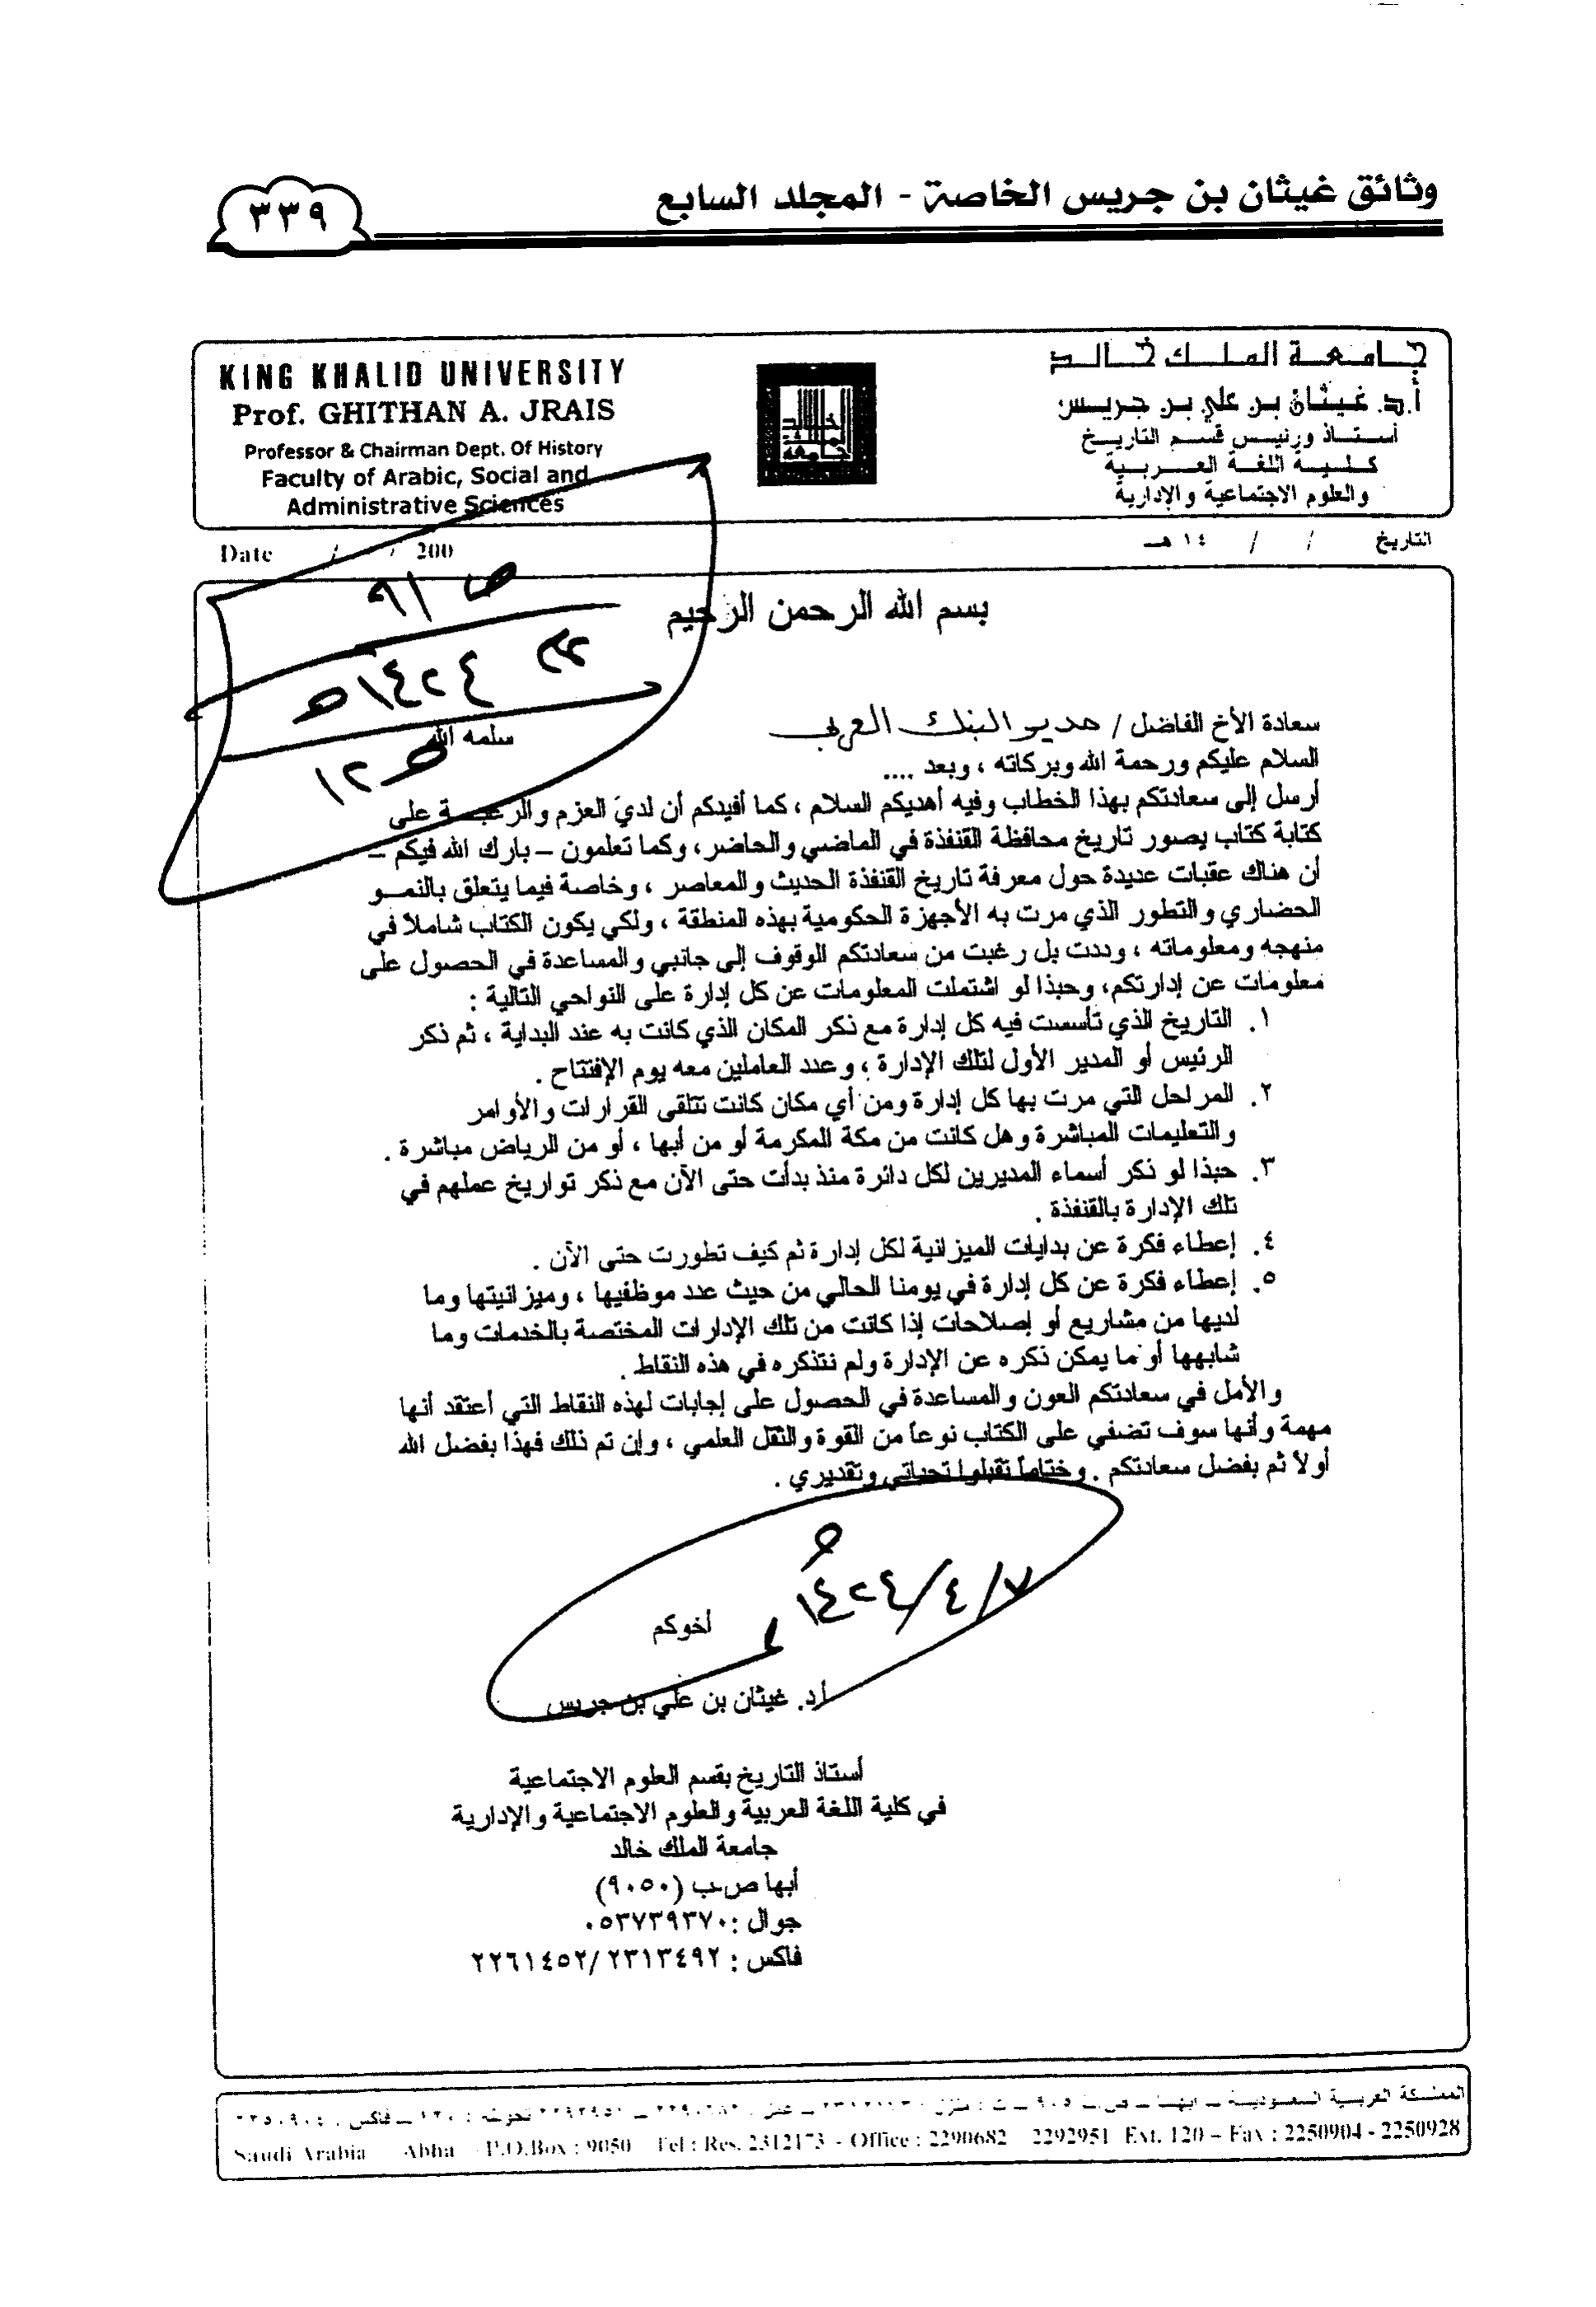 وثائق غيثان بن جريس الخاصة - المجلد السابع
٣٣٩
جامعة الملك خالد
أ.د. غيثان بن علي بن جريس
أستاذ ورئيس قسم التاريخ
كلية اللغة العربية
والعلوم الاجتماعية والإدارية
KING KHALID UNIVERSITY
Prof. GHITHAN A. JRAIS
Professor & Chairman Dept. Of History
Faculty of Arabic, Social and
Administrative Sciences
التاريخ / / ١٤ هـ
Date / / 200
ص ٩١
١٤٢٤هـ
ص ١٢
بسم الله الرحمن الرحيم
سعادة الأخ الفاضل / مدير البنك العربي سلمه الله
السلام عليكم ورحمة الله وبركاته ، وبعد ....
أرسل إلى سعادتكم بهذا الخطاب وفيه أهديكم السلام ، كما أفيدكم أن لديَ العزم والرغبة على
كتابة كتاب يصور تاريخ محافظة القنفذة في الماضي والحاضر، وكما تعلمون – بارك الله فيكم –
أن هناك عقبات عديدة حول معرفة تاريخ القنفذة الحديث والمعاصر ، وخاصة فيما يتعلق بالنمو
الحضاري والتطور الذي مرت به الأجهزة الحكومية بهذه المنطقة ، ولكي يكون الكتاب شاملا في
منهجه ومعلوماته ، وددت بل رغبت من سعادتكم الوقوف إلى جانبي والمساعدة في الحصول على
معلومات عن إدارتكم، وحبذا لو اشتملت المعلومات عن كل إدارة على النواحي التالية :
١. التاريخ الذي تأسست فيه كل إدارة مع ذكر المكان الذي كانت به عند البداية ، ثم ذكر
الرئيس أو المدير الأول لتلك الإدارة ، وعدد العاملين معه يوم الإفتتاح .
٢. المراحل التي مرت بها كل إدارة ومن أي مكان كانت تتلقى القرارات والأوامر
والتعليمات المباشرة وهل كانت من مكة المكرمة أو من أبها ، أو من الرياض مباشرة .
٣. حبذا لو ذكر أسماء المديرين لكل دائرة منذ بدأت حتى الآن مع ذكر تواريخ عملهم في
تلك الإدارة بالقنفذة .
٤. إعطاء فكرة عن بدايات الميزانية لكل إدارة ثم كيف تطورت حتى الآن .
٥. إعطاء فكرة عن كل إدارة في يومنا الحالي من حيث عدد موظفيها ، وميزانيتها وما
لديها من مشاريع أو إصلاحات إذا كانت من تلك الإدارات المختصة بالخدمات وما
شابهها أو ما يمكن ذكره عن الإدارة ولم نتذكره في هذه النقاط .
والأمل في سعادتكم العون والمساعدة في الحصول على إجابات لهذه النقاط التي أعتقد أنها
مهمة وأنها سوف تضفي على الكتاب نوعاً من القوة والثقل العلمي ، وإن تم ذلك فهذا بفضل الله
أولاً ثم بفضل سعادتكم . وختاماً تقبلوا تحياتي وتقديري .
١٤٢٤/٤/٧هـ
أخوكم
أ.د. غيثان بن علي بن جريس
أستاذ التاريخ بقسم العلوم الاجتماعية
في كلية اللغة العربية والعلوم الاجتماعية والإدارية
جامعة الملك خالد
أبها ص.ب (٩٠٥٠)
جوال : ٠٥٣٧٣٩٣٧٠
فاكس : ٢٣١٣٤٩٢/ ٢٢٦١٤٥٢
المملكة العربية السعودية – ابها
Saudi Arabia Abha P.O.Box : 9050 Tel : Res. 2312173 - Office : 2290682 2292951 Ext. 120 – Fax : 2250904 - 2250928